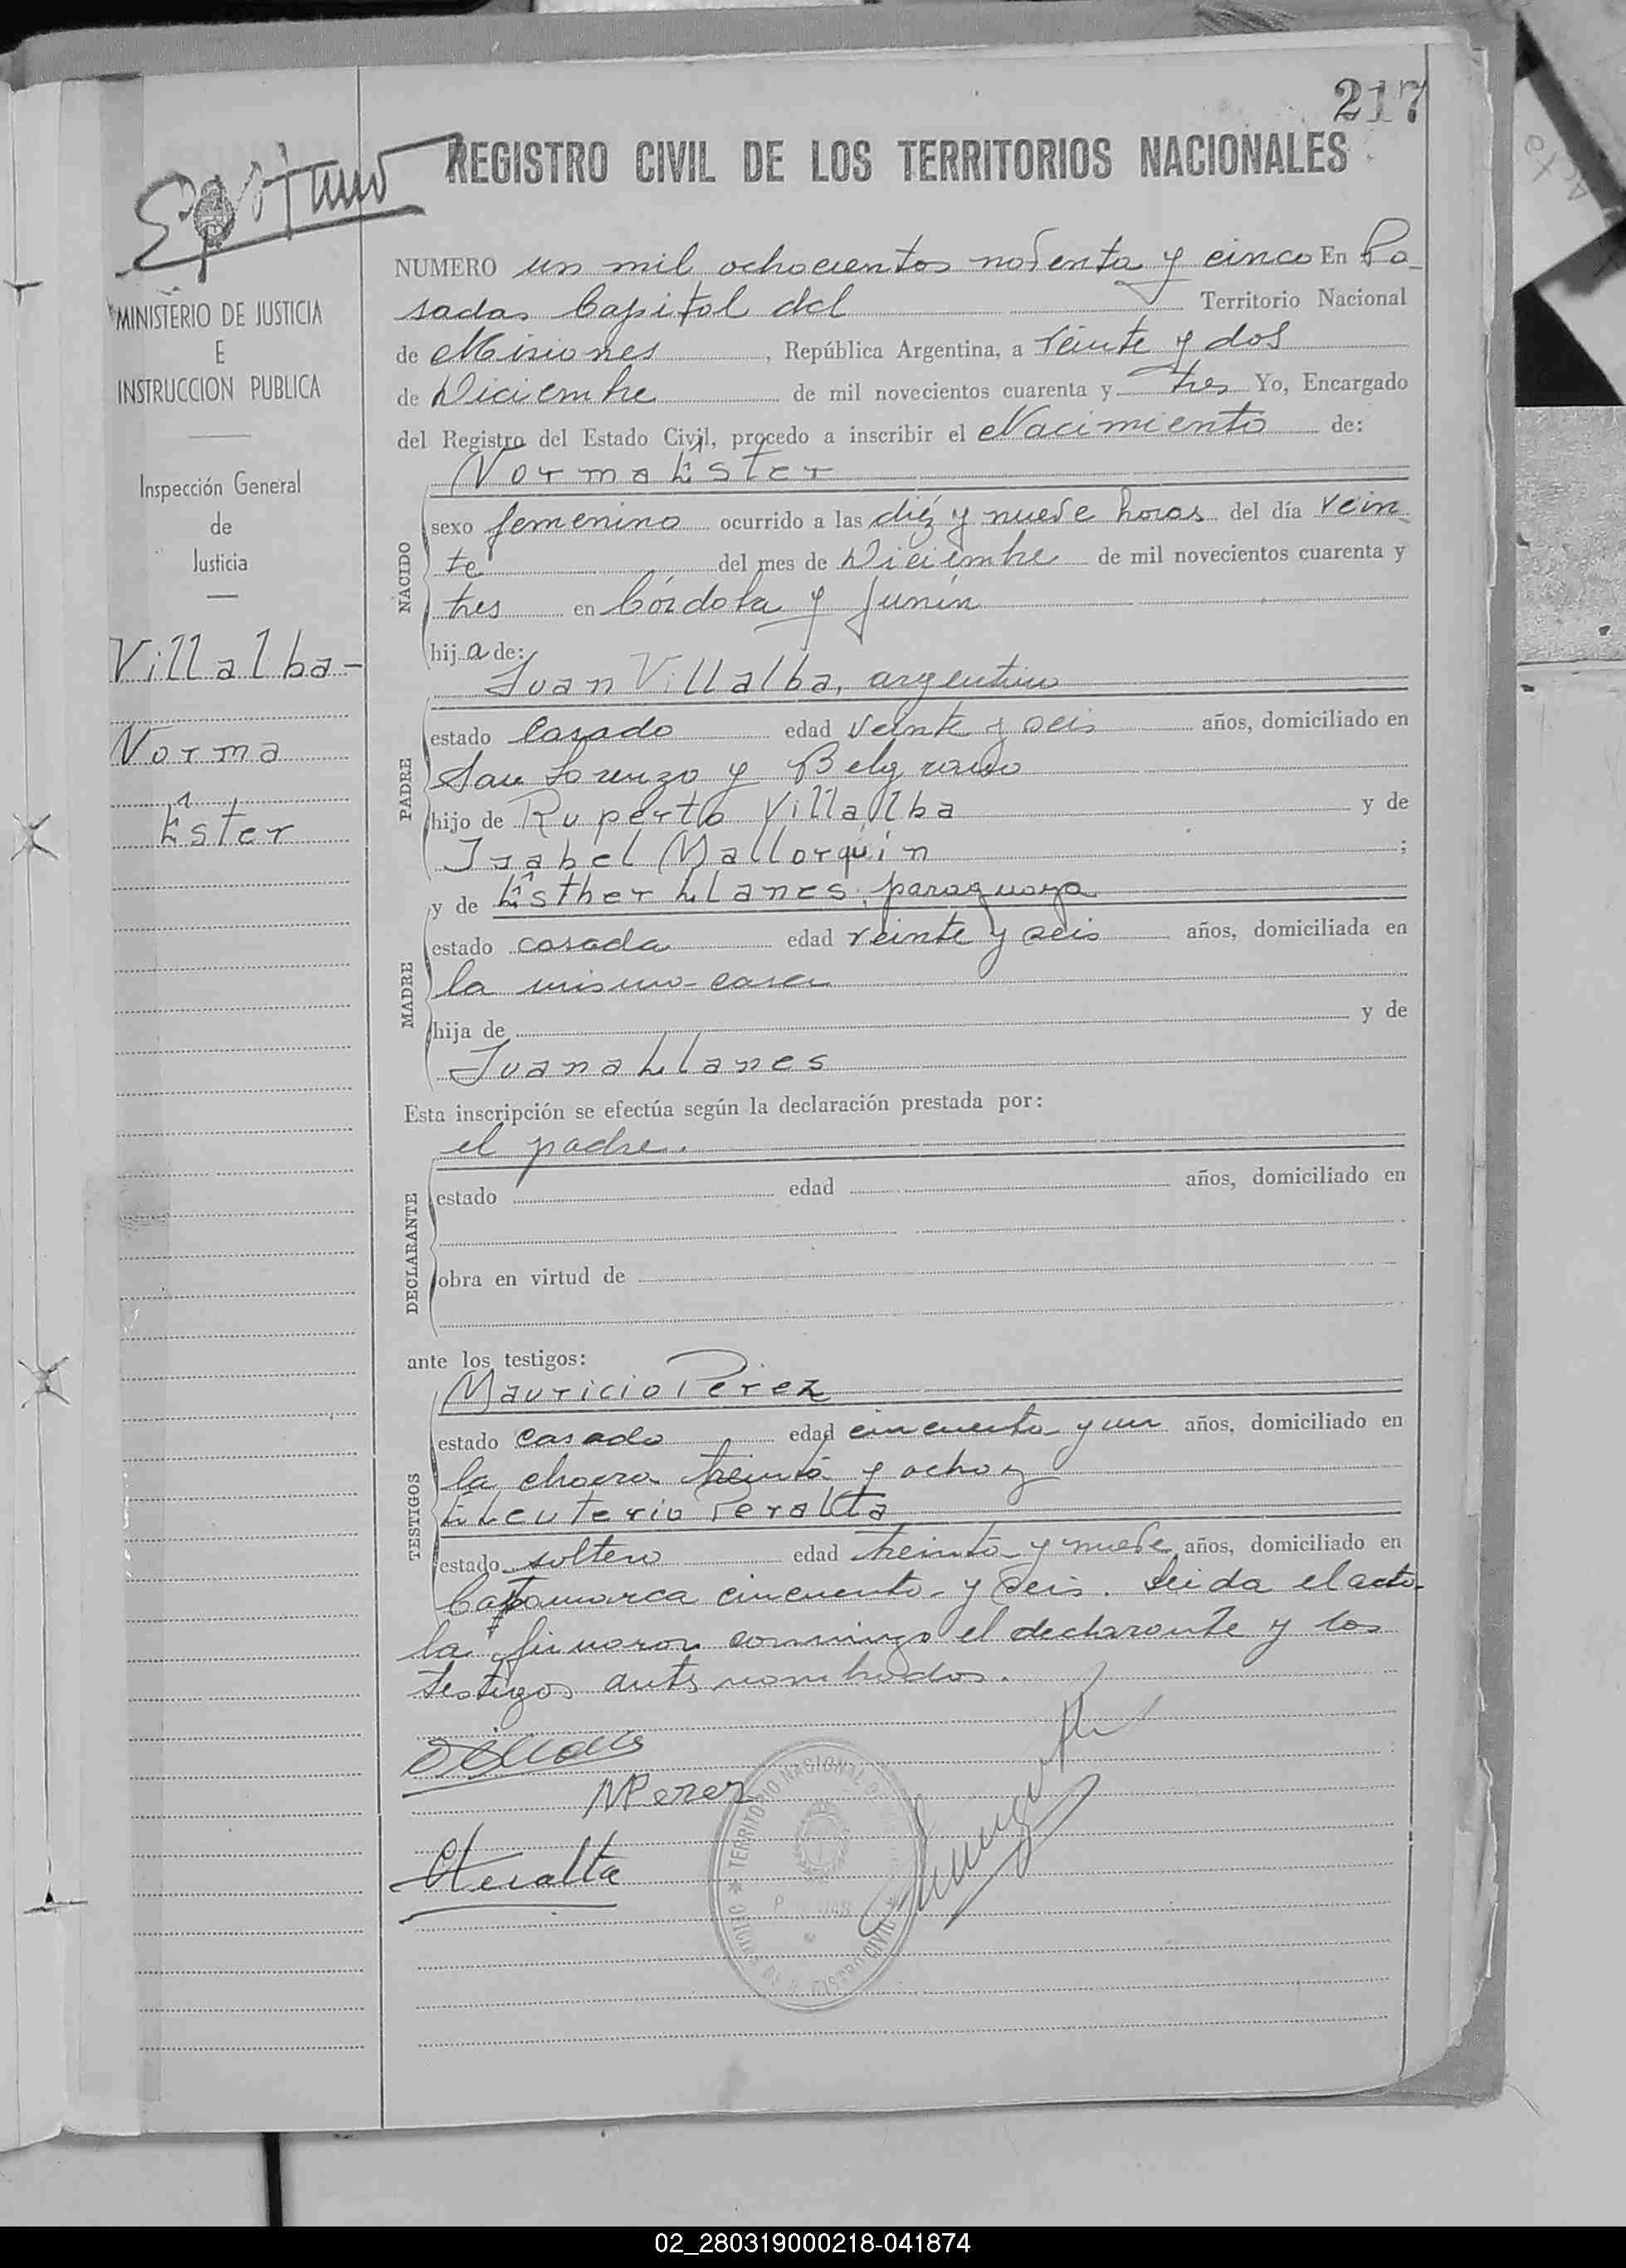 217
REGISTRO CIVIL DE LOS TERRITORIOS NACIONALES
MINISTERIO DE JUSTICIA
E
INSTRUCCION PUBLICA
Inspección General
de
Justicia
Villalba-
Norma
Ester
NUMERO un mil ochocientos noventa y cinco En Po-
sadas Capital del Territorio Nacional
de Misiones, República Argentina, a veinte y dos
de Diciembre de mil novecientos cuarenta y tres Yo, Encargado
del Registro del Estado Civil, procedo a inscribir el Nacimiento de:
Norma Ester
NACIDO
sexo femenino ocurrido a las diéz y nueve horas del día vein
te del mes de Diciembre de mil novecientos cuarenta y
tres en Córdoba y Junín
hija de:
Juan Villalba, argentino
PADRE
estado casado edad veinte y seis años, domiciliado en
San Lorenzo y Belgrano
hijo de Ruperto Villalba y de
Isabel Mallorquin ;
y de Esther Llanes, paraguaya
MADRE
estado casada edad veinte y seis años, domiciliada en
la misma casa
hija de y de
Juana Llanes
Esta inscripción se efectúa según la declaración prestada por:
el padre.
DECLARANTE
estado edad años, domiciliado en
obra en virtud de
ante los testigos:
Mauricio Perez
TESTIGOS
estado casado edad cincuenta y un años, domiciliado en
la chacra treinta y ocho y
Eleuterio Peralta
estado soltero edad treinta y nueve años, domiciliado en
Catamarca cincuenta y seis. Leida el acta
la firmaron conmigo el declarante y los
testigos ants nombrados.
MPerez
Peralta
TERRITORIO NACIONAL
REGISTRO CIVIL
02_280319000218-041874